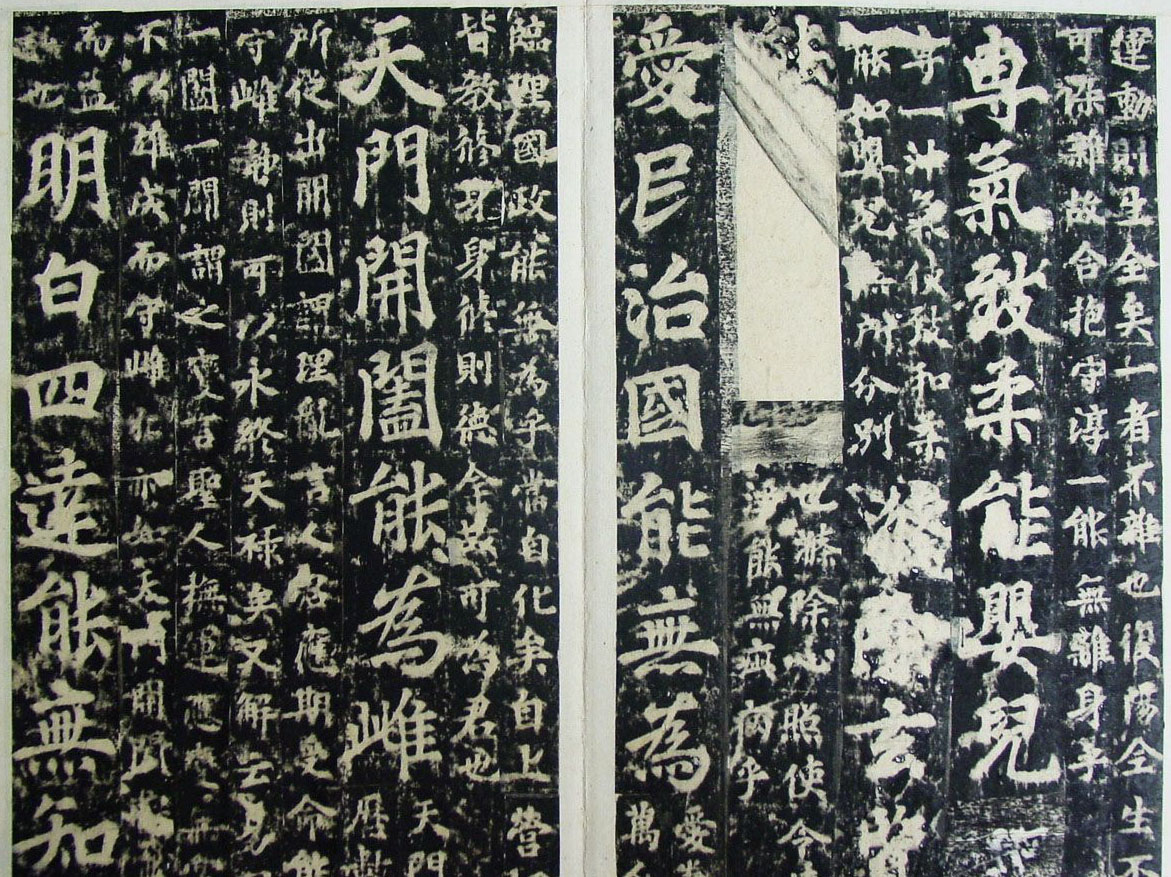 運動則生全矣一者不雜也復陽全生不
可染雜故令抱守淳一能無離身乎
專氣致柔能嬰兒
守一沖氣使致和柔
能如嬰兒無所分別
玄覽
世滌除心照使令
能無疵病乎
愛民治國能無為
愛
萬人
臨理國政能無為乎當自化矣自上營
皆教修身身修則德全故可為君也
天門開闔能為雌
天門
曆數
所從出開闔謂理亂言人君應期受命能
守雌靜則可以永終天祿矣又解云易
一闔一闢謂之變言聖人撫運應變無
不以雄成而守雌牝亦如天門開闔
而益
謙也
明白四達能無知